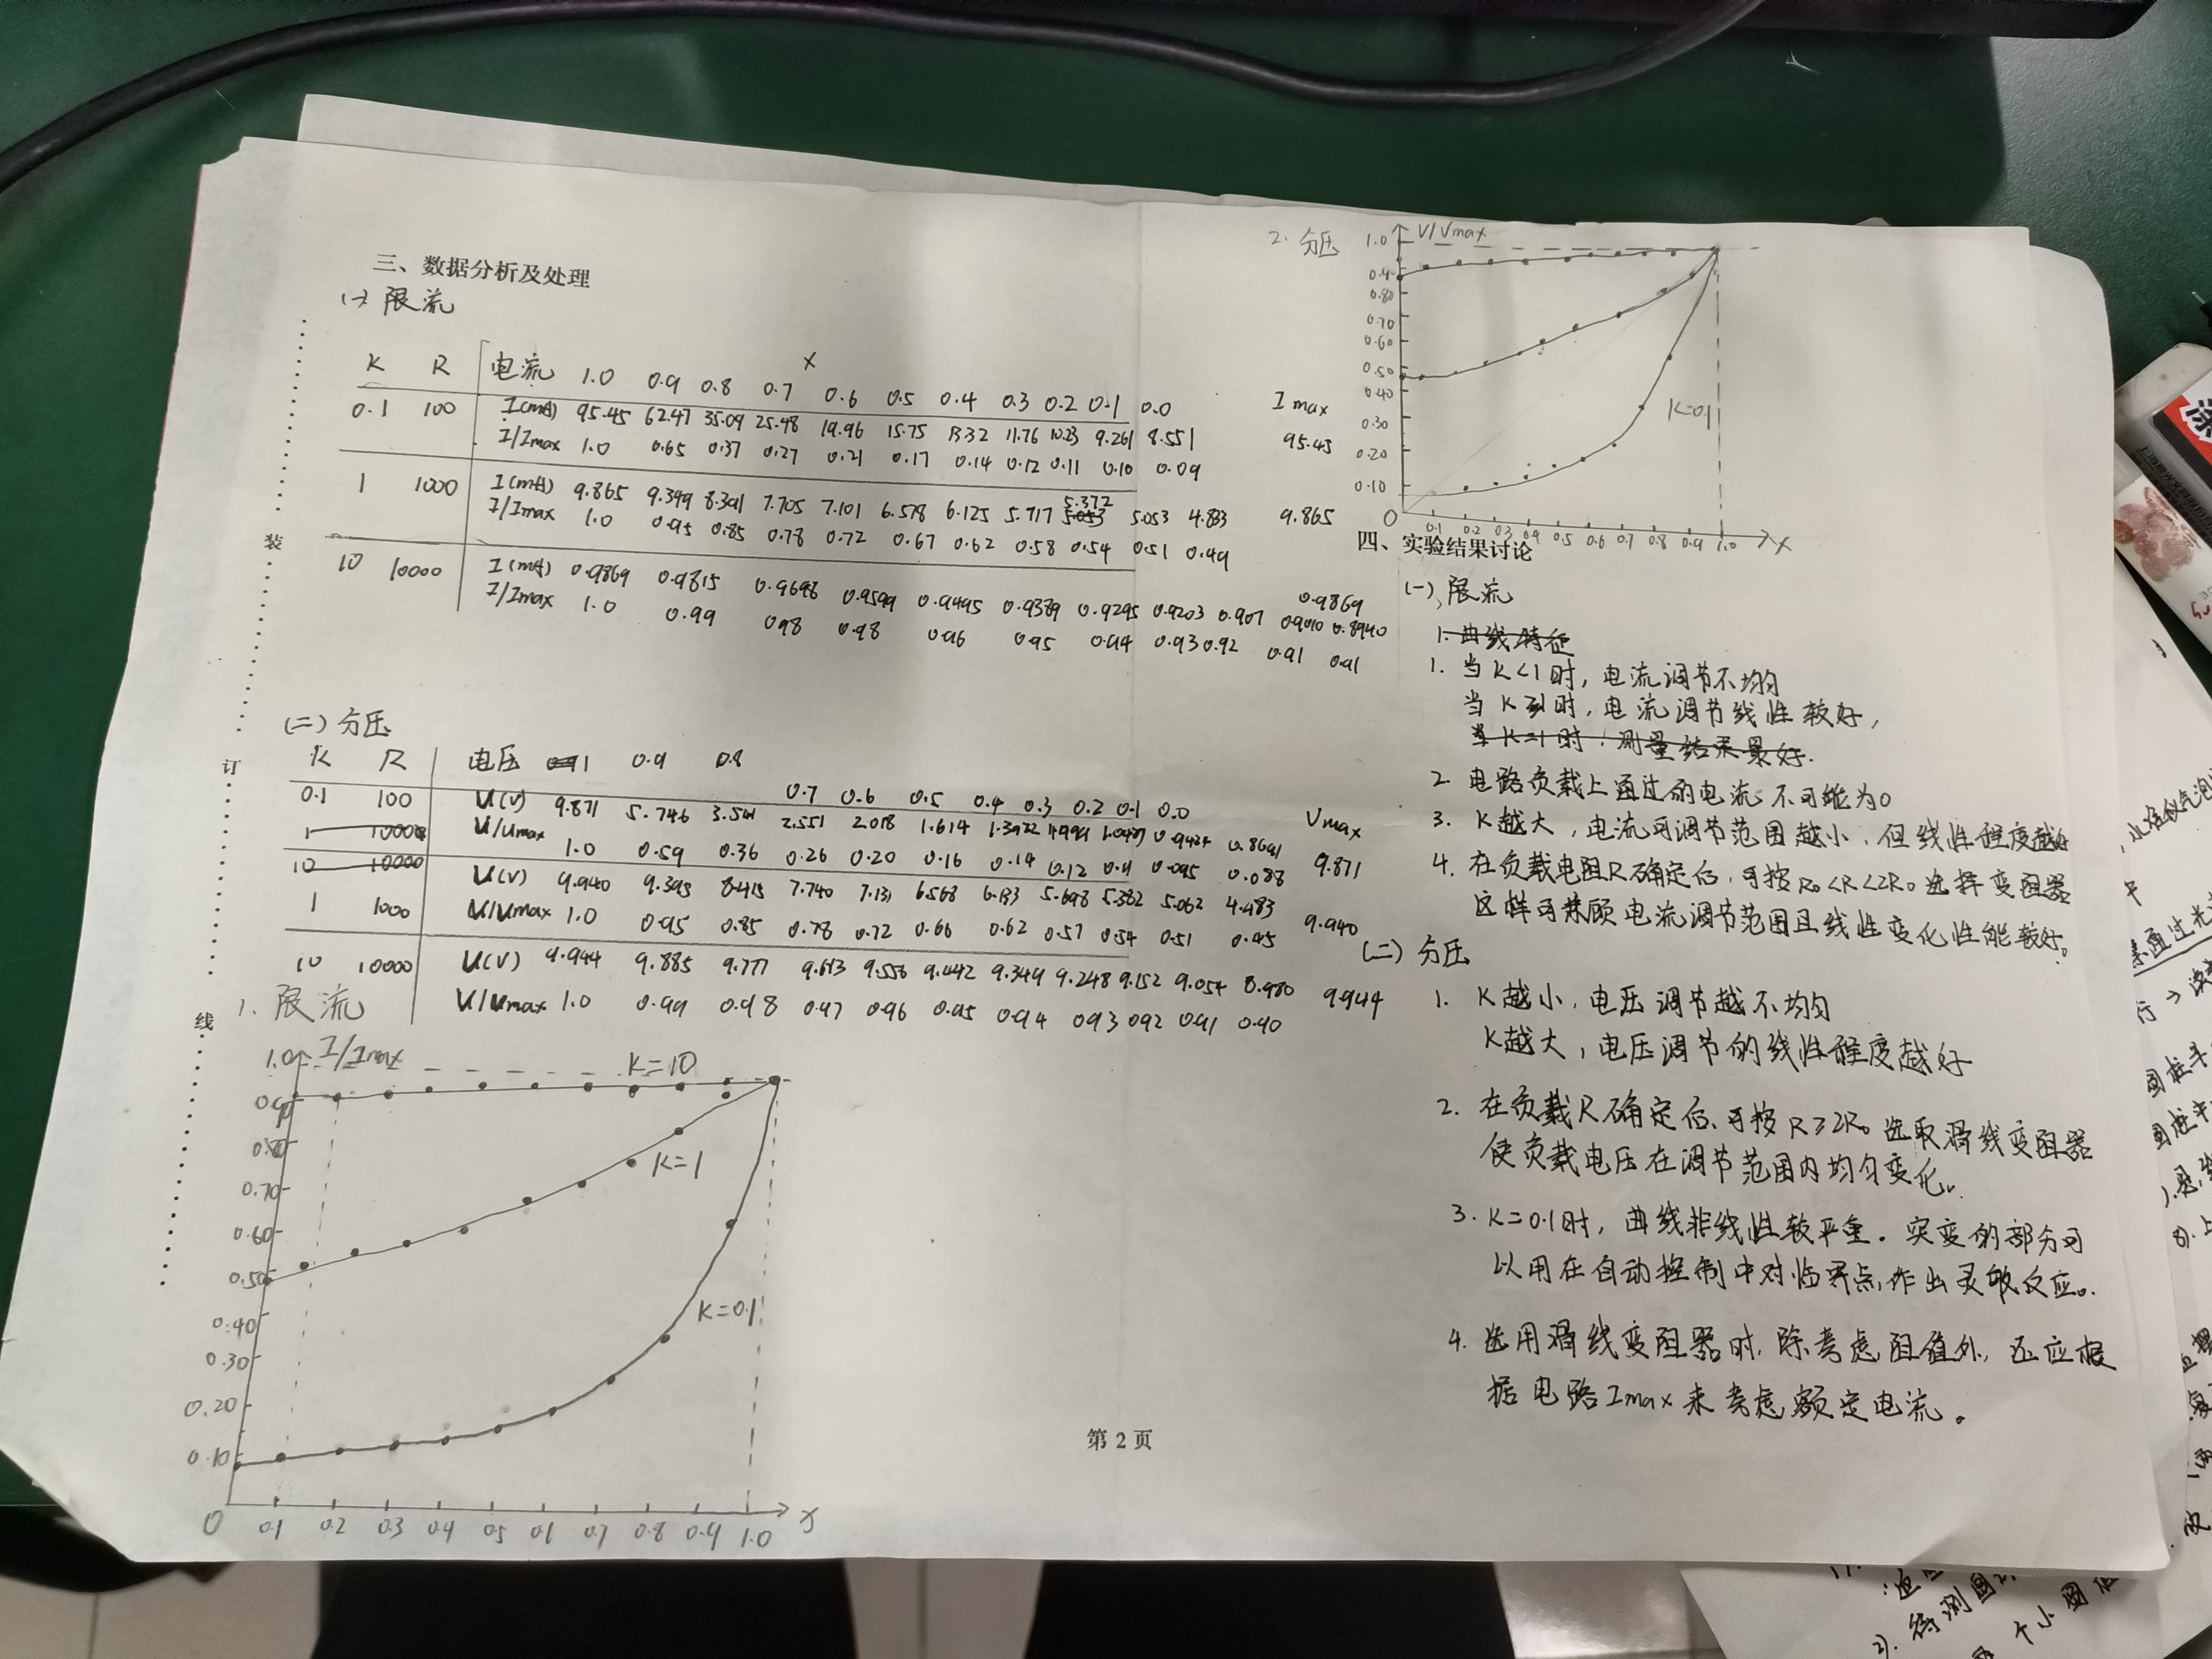 三、数据分析及处理
(一) 限流
K R 电流 X
1.0 0.9 0.8 0.7 0.6 0.5 0.4 0.3 0.2 0.1 0.0 Imax
0.1 100 I(mA) 95.45 62.47 35.09 25.48 19.96 15.75 13.32 11.76 10.23 9.261 8.551 95.45
I/Imax 1.0 0.65 0.37 0.27 0.21 0.17 0.14 0.12 0.11 0.10 0.09
1 1000 I(mA) 9.865 9.399 8.391 7.705 7.101 6.578 6.125 5.717 5.372 5.053 4.833 9.865
I/Imax 1.0 0.95 0.85 0.78 0.72 0.67 0.62 0.58 0.54 0.51 0.49
10 10000 I(mA) 0.9869 0.9815 0.9698 0.9599 0.9495 0.9389 0.9295 0.9203 0.907 0.9010 0.8940 0.9869
I/Imax 1.0 0.99 0.98 0.98 0.96 0.95 0.94 0.93 0.92 0.91 0.91
(二) 分压
K R 电压 1 0.9 0.8 0.7 0.6 0.5 0.4 0.3 0.2 0.1 0.0 Vmax
0.1 100 U(V) 9.871 5.746 3.541 2.551 2.018 1.614 0.9424 9.871
U/Umax 1.0 0.59 0.36 0.26 0.20 0.16 0.14 0.12 0.11 0.095 0.088
1 1000 U(V) 9.940 9.393 8.413 7.740 7.131 6.568 6.133 5.698 5.382 5.062 4.483 9.940
U/Umax 1.0 0.95 0.85 0.78 0.72 0.66 0.62 0.57 0.54 0.51 0.45
10 10000 U(V) 9.944 9.885 9.777 9.673 9.556 9.442 9.349 9.248 9.152 9.054 8.980 9.944
U/Umax 1.0 0.99 0.98 0.97 0.96 0.95 0.94 0.93 0.92 0.91 0.90
装
订
线
1. 限流
I/Imax
1.0
0.9
0.80
0.70
0.60
0.50
0.40
0.30
0.20
0.10
K=10
K=1
K=0.1
0 0.1 0.2 0.3 0.4 0.5 0.6 0.7 0.8 0.9 1.0 X
第 2 页
2. 分压
V/Vmax
1.0
0.9
0.80
0.70
0.60
0.50
0.40
0.30
0.20
0.10
K=0.1
0 0.1 0.2 0.3 0.4 0.5 0.6 0.7 0.8 0.9 1.0 X
四、实验结果讨论
(一) 限流
1. 曲线特征
1. 当K<1时, 电流调节不均匀
当K≥1时, 电流调节线性较好,
当K=1时, 测量结果最好.
2 电路负载上通过的电流不可能为0
3. K越大, 电流可调节范围越小, 但线性程度越好
4. 在负载电阻R确定后, 可按R₀<R<2R₀选择变阻器
这样可兼顾电流调节范围且线性变化性能较好。
(二) 分压
1. K越小, 电压调节越不均匀
K越大, 电压调节的线性程度越好
2. 在负载R确定后, 可按R≥2R₀选取滑线变阻器
使负载电压在调节范围内均匀变化.
3. K=0.1时, 曲线非线性较严重。突变的部分可
以用在自动控制中对临界点作出灵敏反应。
4. 选用滑线变阻器时, 除考虑阻值外, 还应根
据电路Imax来考虑额定电流。